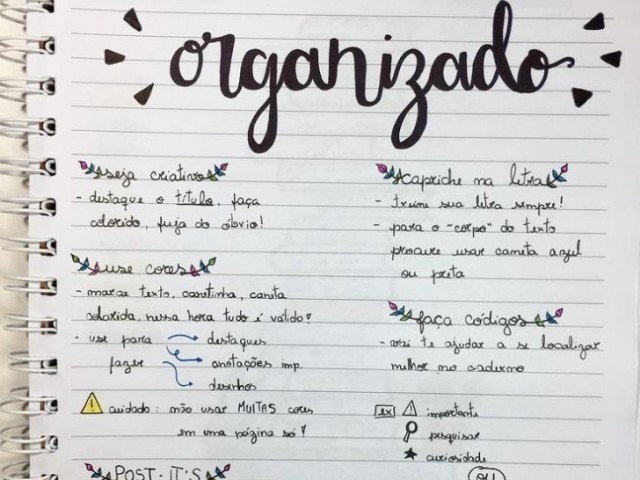 organizado
seja criativo
- destaque o título, faça
colorido, fuja do óbvio!
use cores
- marca texto, canetinha, caneta
colorida, nessa hora tudo é válido!
- use para
fazer
destaques
anotações imp.
desenhos
cuidado: não usar MUITAS cores
em uma página só!
POST-IT'S
capriche na letra
- treine sua letra sempre!
- para o "corpo" do texto
procure usar caneta azul
ou preta
faça códigos
- vai te ajudar a se localizar
melhor no caderno
ex
importante
pesquisar
curiosidade
ou